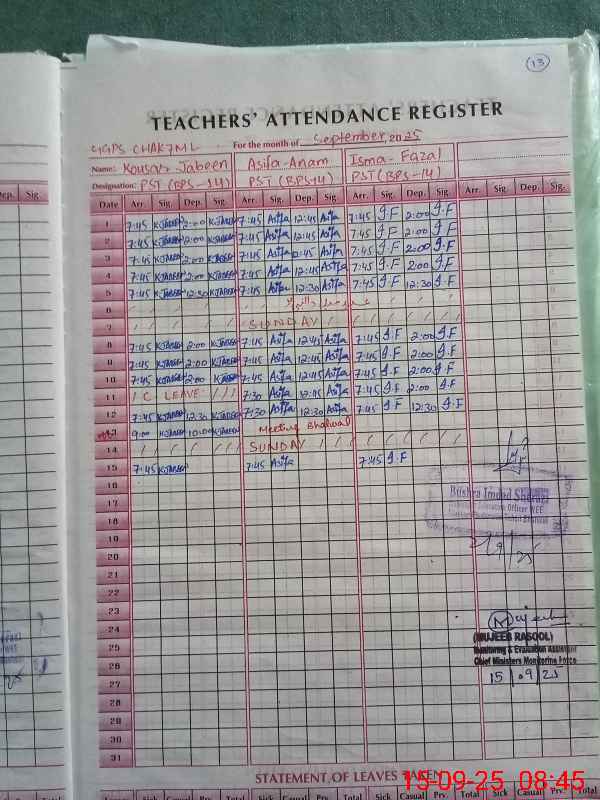 13
TEACHERS' ATTENDANCE REGISTER
GGPS CHAK 7ML For the month of September, 2025
Name: Kousar Jabeen Asifa-Anam Isma-Fazal
Designation: PST (BPS-14) PST (BPS-14) PST (BPS-14)
Dep. Sig. Date Arr. Sig. Dep. Sig. Arr. Sig. Dep. Sig. Arr. Sig. Dep. Sig. Arr. Sig. Dep. Sig.
1 7:45 K.Jabeen 2:00 K.Jabeen 7:45 Asifa 12:45 Asifa 7:45 I.F 2:00 I.F
2 7:45 K.Jabeen 2:00 K.Jabeen 7:45 Asifa 12:45 Asifa 7:45 I.F 2:00 I.F
3 7:45 K.Jabeen 2:00 K.Jabeen 7:45 Asifa 12:45 Asifa 7:45 I.F 2:00 I.F
4 7:45 K.Jabeen 2:00 K.Jabeen 7:45 Asifa 12:45 Asifa 7:45 I.F 2:00 I.F
5 7:45 K.Jabeen 12:30 K.Jabeen 7:45 Asifa 12:30 Asifa 7:45 I.F 12:30 I.F
6
7 SUNDAY
8 7:45 K.Jabeen 2:00 K.Jabeen 7:45 Asifa 12:45 Asifa 7:45 I.F 2:00 I.F
9 7:45 K.Jabeen 2:00 K.Jabeen 7:45 Asifa 12:45 Asifa 7:45 I.F 2:00 I.F
10 7:45 K.Jabeen 2:00 K.Jabeen 7:45 Asifa 12:45 Asifa 7:45 I.F 2:00 I.F
11 C LEAVE 7:30 Asifa 12:45 Asifa 7:45 I.F 2:00 I.F
12 7:45 K.Jabeen 12:30 K.Jabeen 7:30 Asifa 12:30 Asifa 7:45 I.F 12:30 I.F
13 9:00 K.Jabeen 10:00 K.Jabeen Meeting Bhalwal
14 SUNDAY
15 7:45 K.Jabeen 7:45 Asifa 7:45 I.F
16
17
18
19
20
21
22
23
24
25
26
27
28
29
30
31
Bushra Imdad
Education Officer WEE
Bhalwal
9/25
Mujeeb
(MUJEEB RASOOL)
Monitoring & Evaluation Assistant
Chief Ministers Monitoring Force
15/09/25
STATEMENT OF LEAVES TAKEN
Sick Casual Prv. Total Sick Casual Prv. Total Sick Casual Prv. Total Sick Casual Prv. Total
15-09-25 08:45